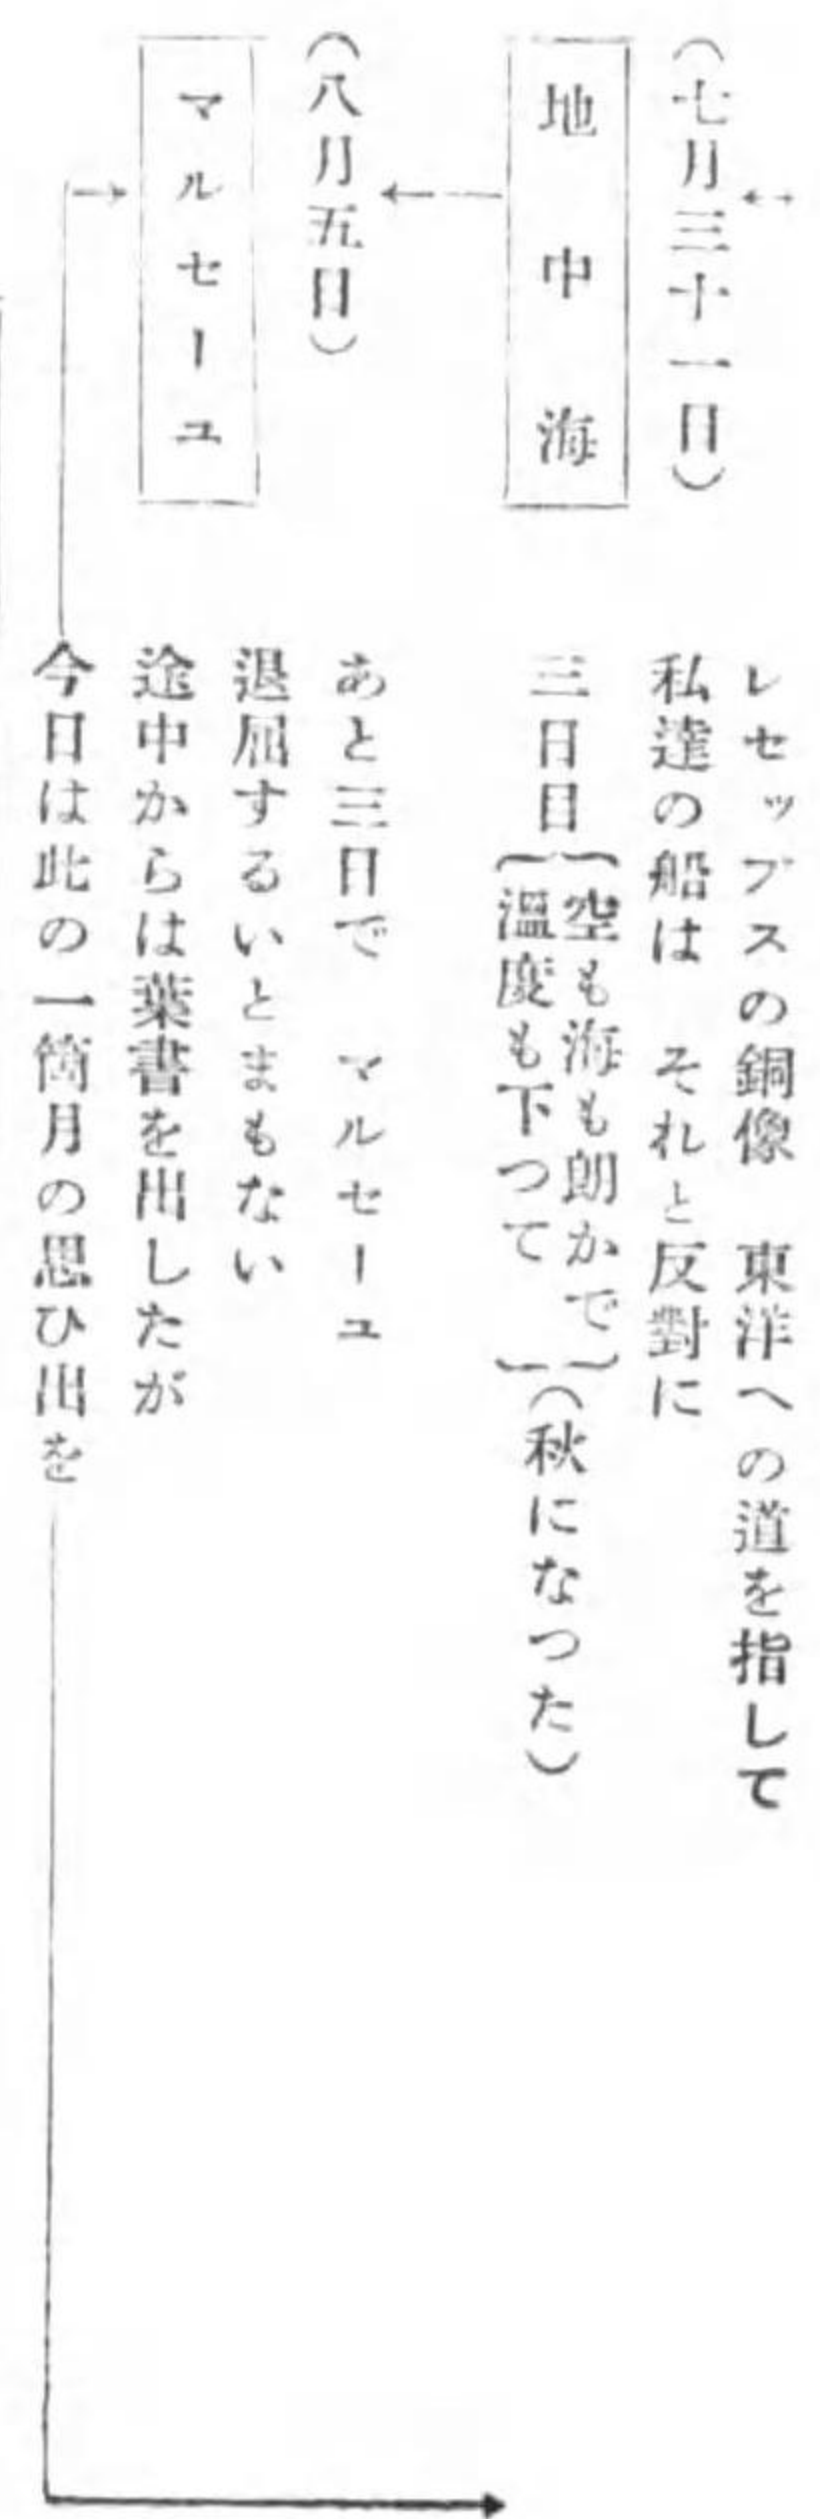 (七月三十一日)
地中海
(八月五日)
マルセーユ
レセップスの銅像 東洋への道を指して
私達の船は それと反對に
三日目
空も海も朗かで
溫度も下つて
(秋になつた)
あと三日で マルセーユ
退屈するいとまもない
途中からは葉書を出したが
今日は此の一箇月の思ひ出を